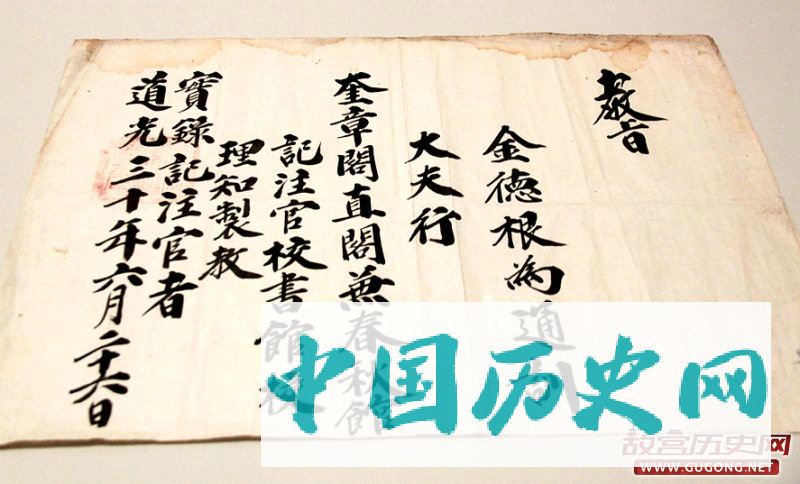 敎旨
金德根為通訓
大夫行
奎章閣直閣兼春秋館
記注官校書館校
理知製敎
實錄記注官者
道光三十年六月二十六日
中国历史网
故宫历史网
WWW.GUGONG.NET